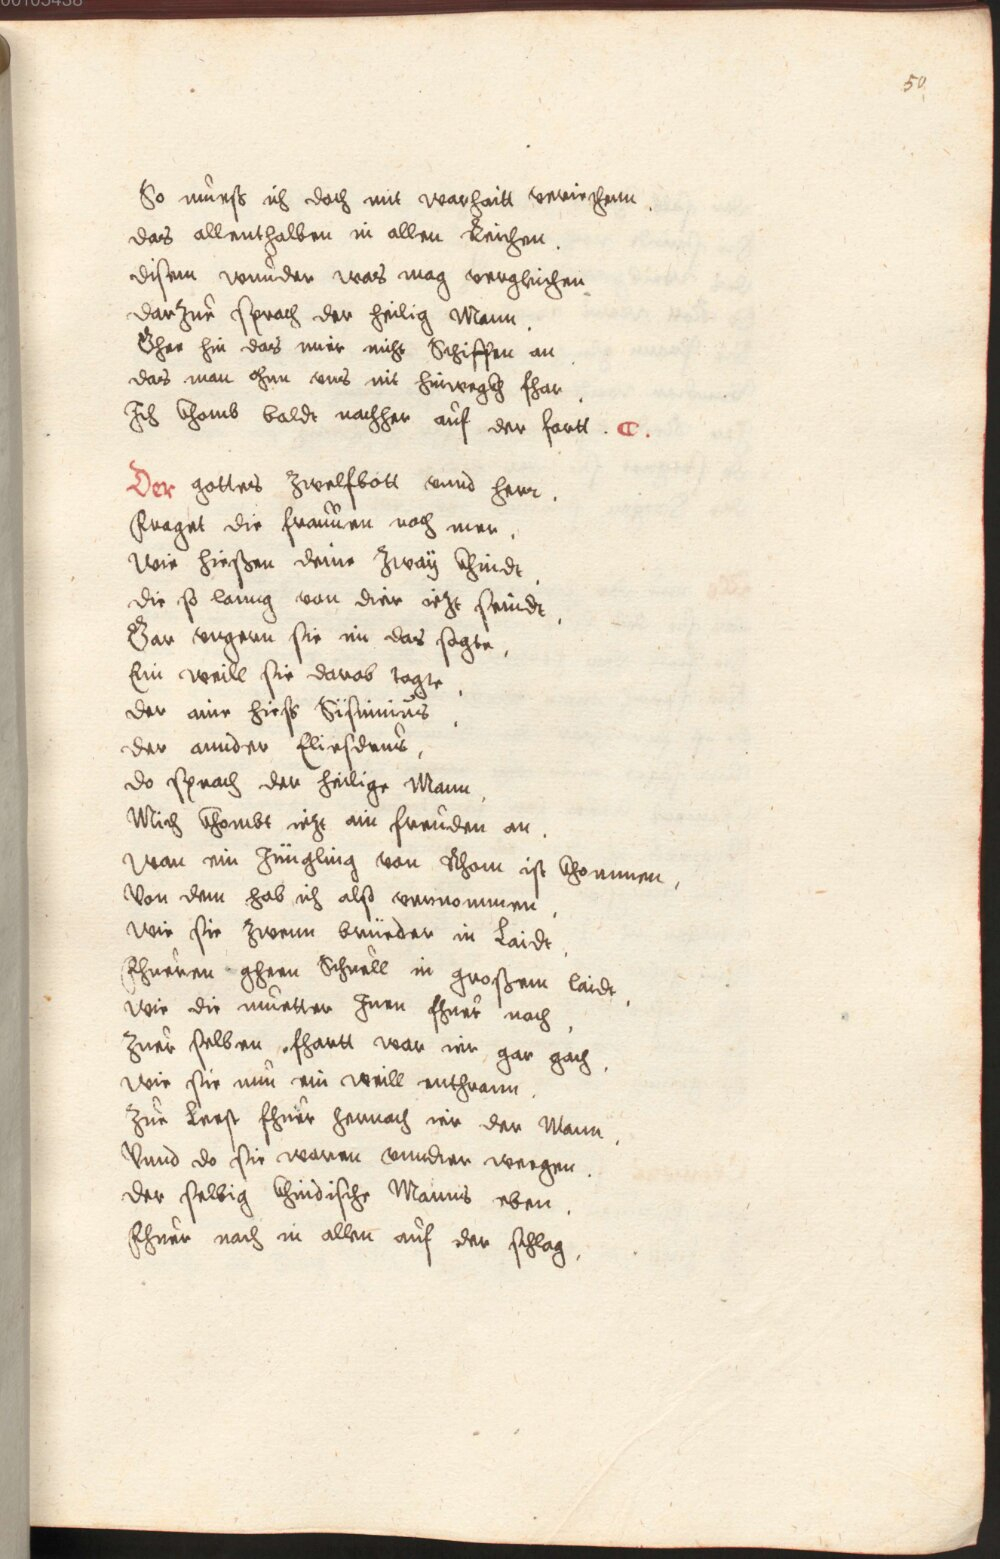 00103438
50
So müeß ich doch mit warhaitt veriechenn.
das allenthalben in allen Reichen.
disem wunder was mag vergleichen.
darzue sprach der heilig Mann.
Ehee hin das mir nicht Schiffen an.
das man ohn uns nit hinwegkh fhar.
Ich khomb baldt nachher auf der fartt. C.
Der gottes zwelfbott vnnd herr.
Fraget die frauuen noch mer.
Wie hießen deine zwaÿ khindt.
die so lanng von dier ietzt seindt.
Gar vngern sie im das sagte.
Ein weill sie darob tagte.
der aine hieß Sisinnius.
der annder Eliesdrus.
do sprach der heilige Mann.
Mich khombt ietzt ain freuden an.
wan ein Jüngling von Rhom ist khommen.
Von dem hab ich alß vernommen.
wie sie zwenn brüeder in Laidt.
Fhueren gheen Schnell in großem laidt.
wie die muetter Inen fhuer nach.
Zuer selben fhartt war ier gar gach.
wie sie nun ein weill enthrann.
Zue Leest fhuer hernach ier der Mann.
Vnnd do sie waren vnnder weegen.
der selbig khindische Manns eben.
Fhuer nach in allen auf der schlag.